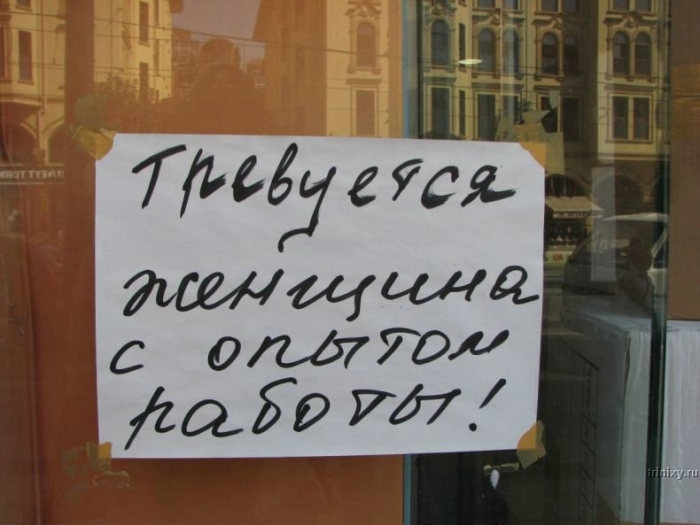 Требуется
женщина
с опытом
работы!
trinixy.ru